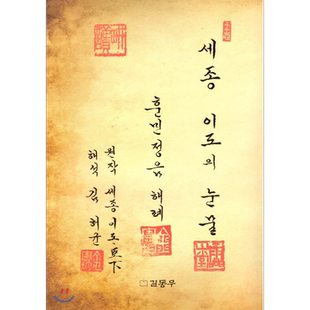 세종 이도의 눈물
훈민정음 해례
원작 세종 이도·
해석 김 허균
길동무